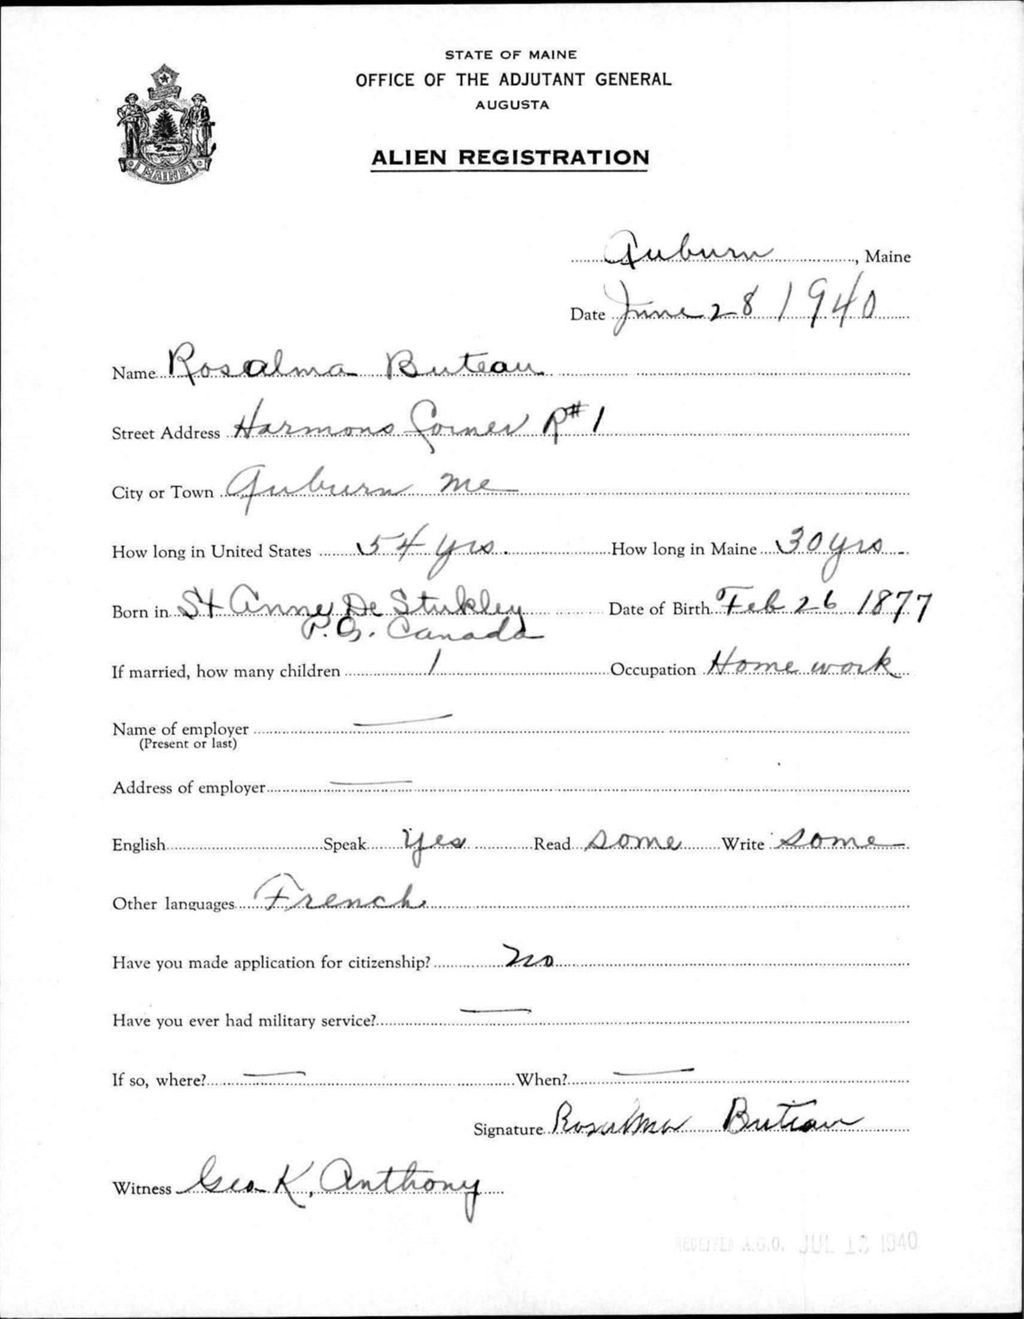 STATE OF MAINE
OFFICE OF THE ADJUTANT GENERAL
AUGUSTA
ALIEN REGISTRATION
MAINE
Auburn, Maine
Date June 28 1940
Name Rosalma Buteau
Street Address Harmons Corner R#1
City or Town Auburn Me
How long in United States 54 yrs. How long in Maine 30 yrs
Born in St Anne De Stukley Date of Birth Feb 26 1877
P.Q. Canada
If married, how many children 1 Occupation Home work
Name of employer —
(Present or last)
Address of employer —
English Speak Yes Read some Write some
Other languages French
Have you made application for citizenship? No
Have you ever had military service? —
If so, where? — When? —
Signature Rosalma Buteau
Witness Geo K. Anthony
RECEIVED A.G.O. JUL 13 1940